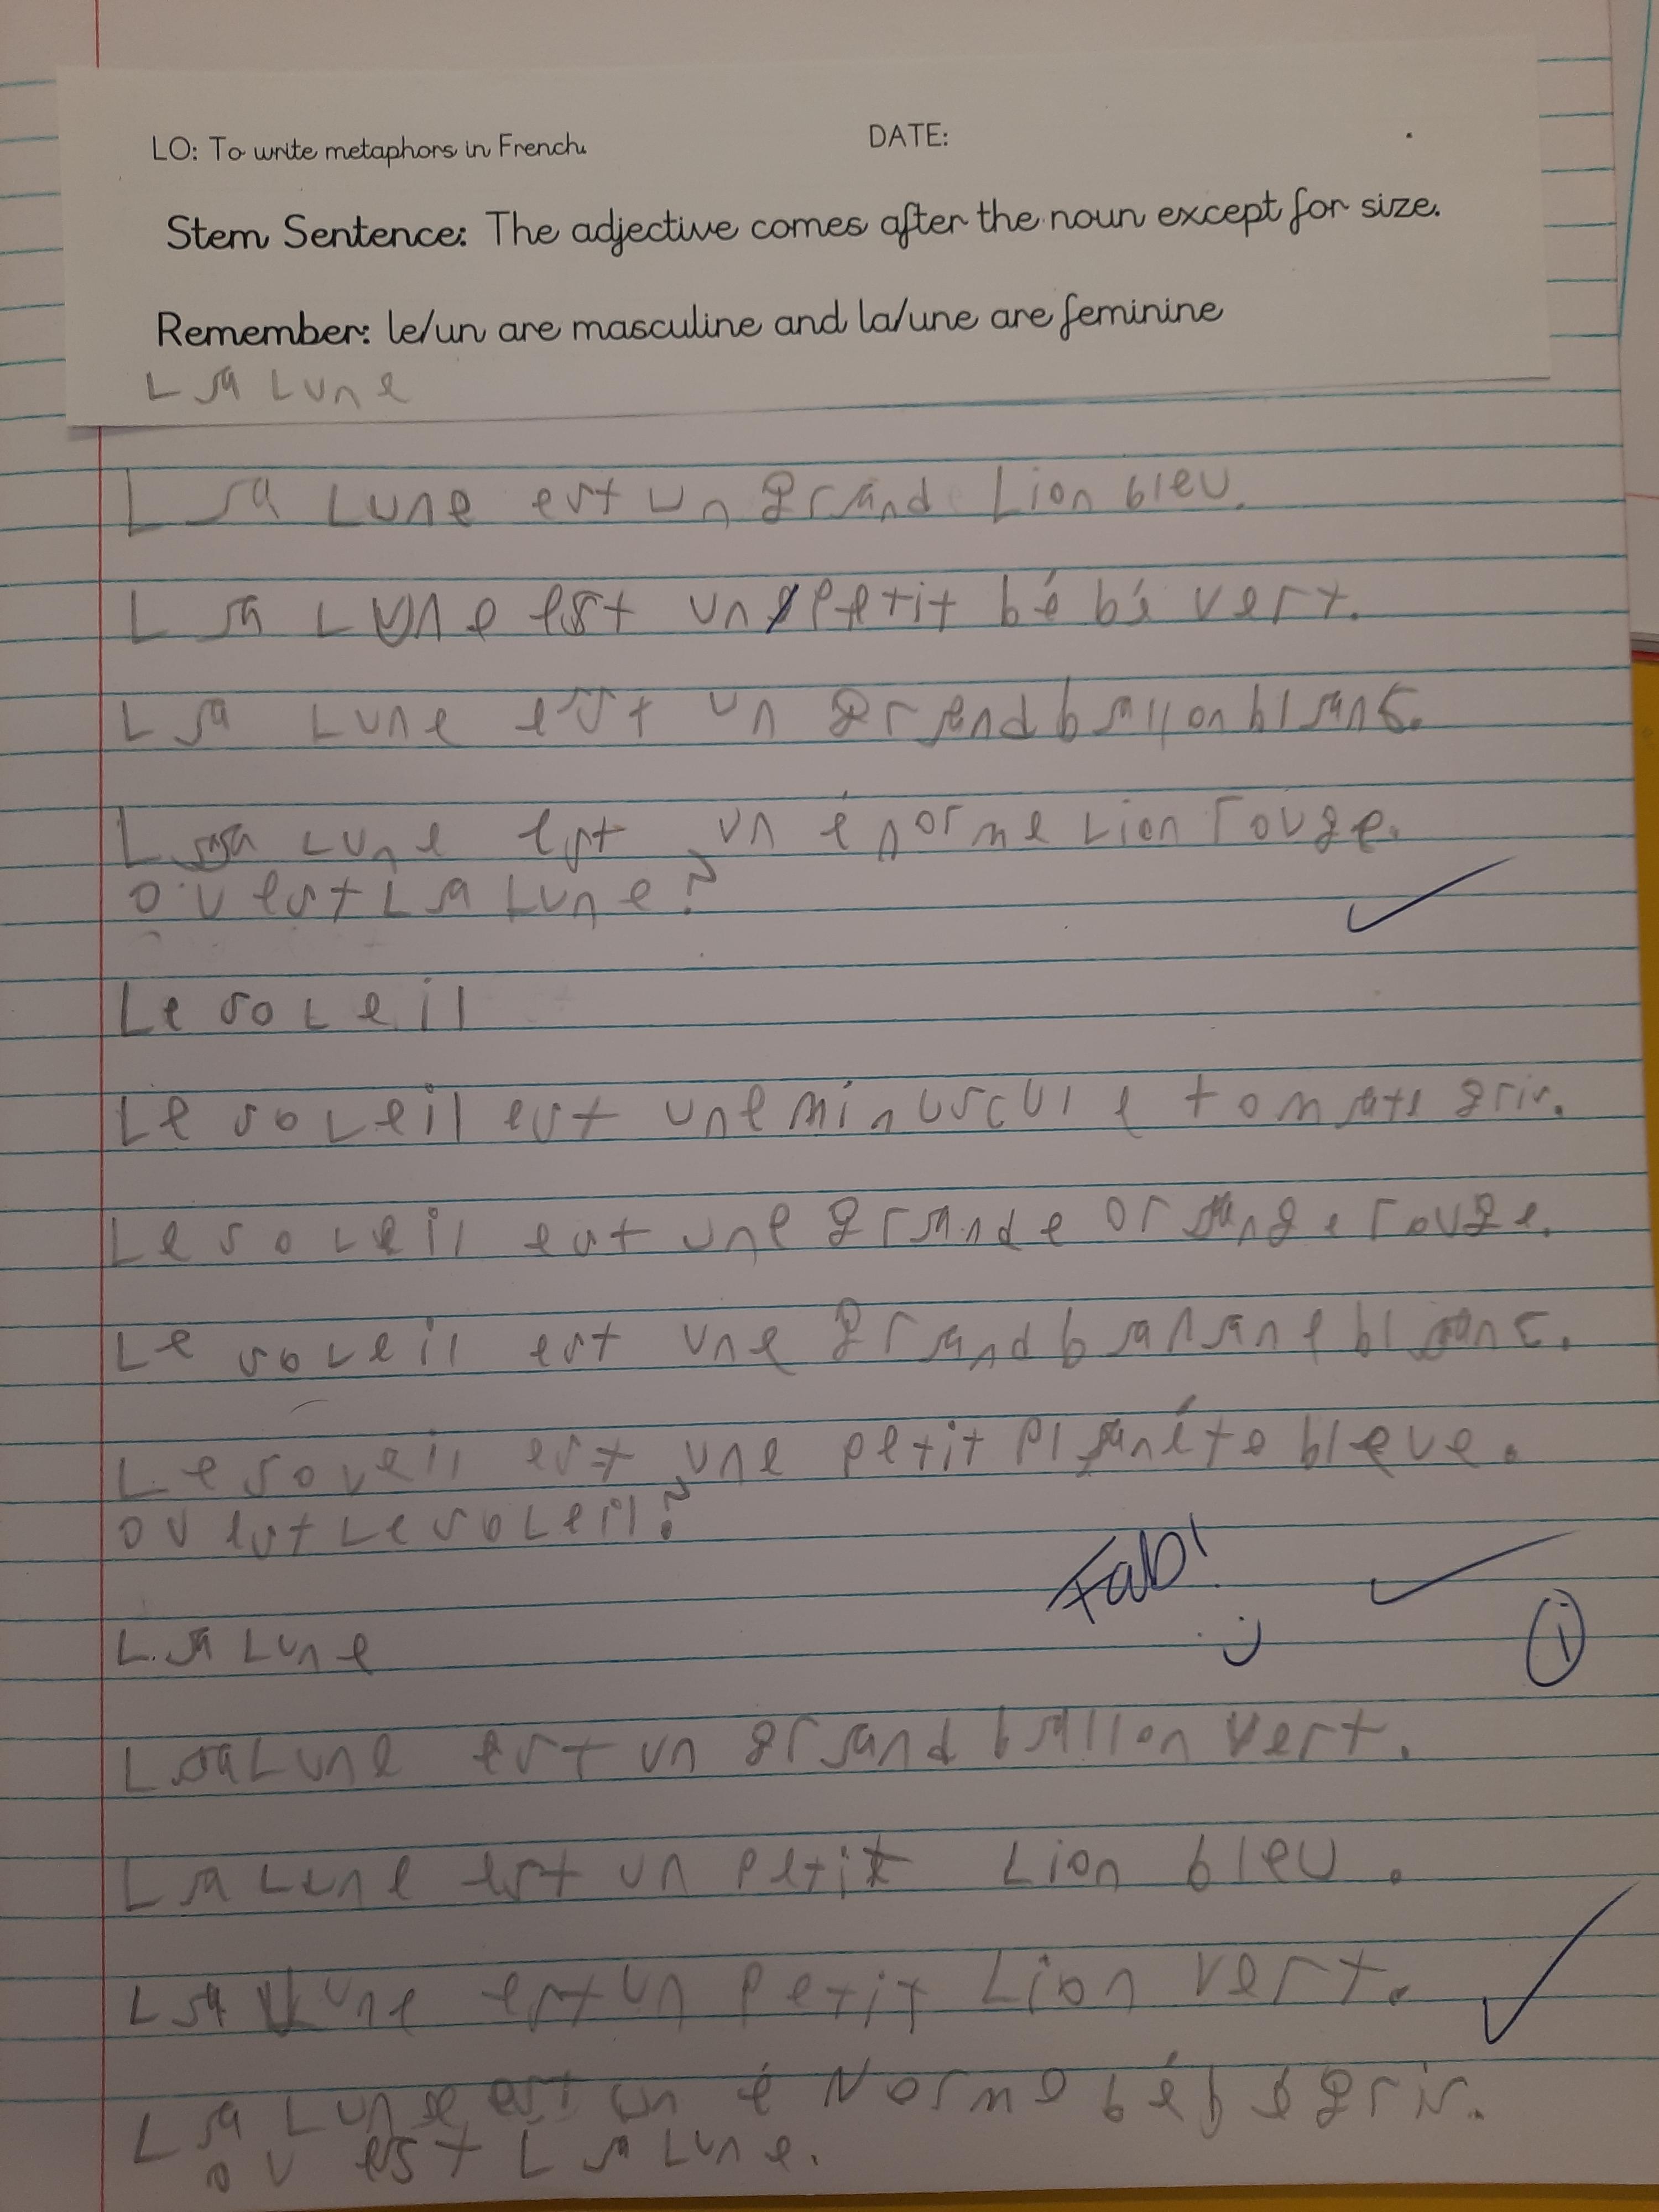 LO: To write metaphors in French. DATE:
Stem Sentence: The adjective comes after the noun except for size.
Remember: le/un are masculine and la/une are feminine
La Lune
La Lune est un grand Lion bleu.
La Lune est un petit bébé vert.
La Lune est un grand ballon blanc.
La Lune est un énorme Lion rouge.
ou est La Lune?
Le soLeil
Le soLeil est une minuscule tomate gris.
Le soLeil est une grande orange rouge.
Le soLeil est une grand banane blanc.
Le soleil est une petit planéte bleue.
ou est Le soLeil?
Fab!
:)
La Lune
La Lune est un grand ballon vert.
La Lune est un petit Lion bleu.
La Lune est un petit Lion vert.
La Lune est un énorme bébé gris.
ou est La Lune.